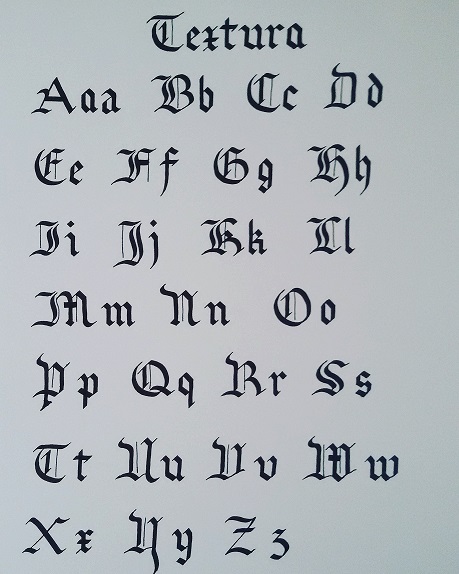 Textura
Aaa Bb Cc Dd
Ee Ff Gg Hh
Ii Jj Kk Ll
Mm Nn Oo
Pp Qq Rr Ss
Tt Uu Vv Ww
Xx Yy Zz